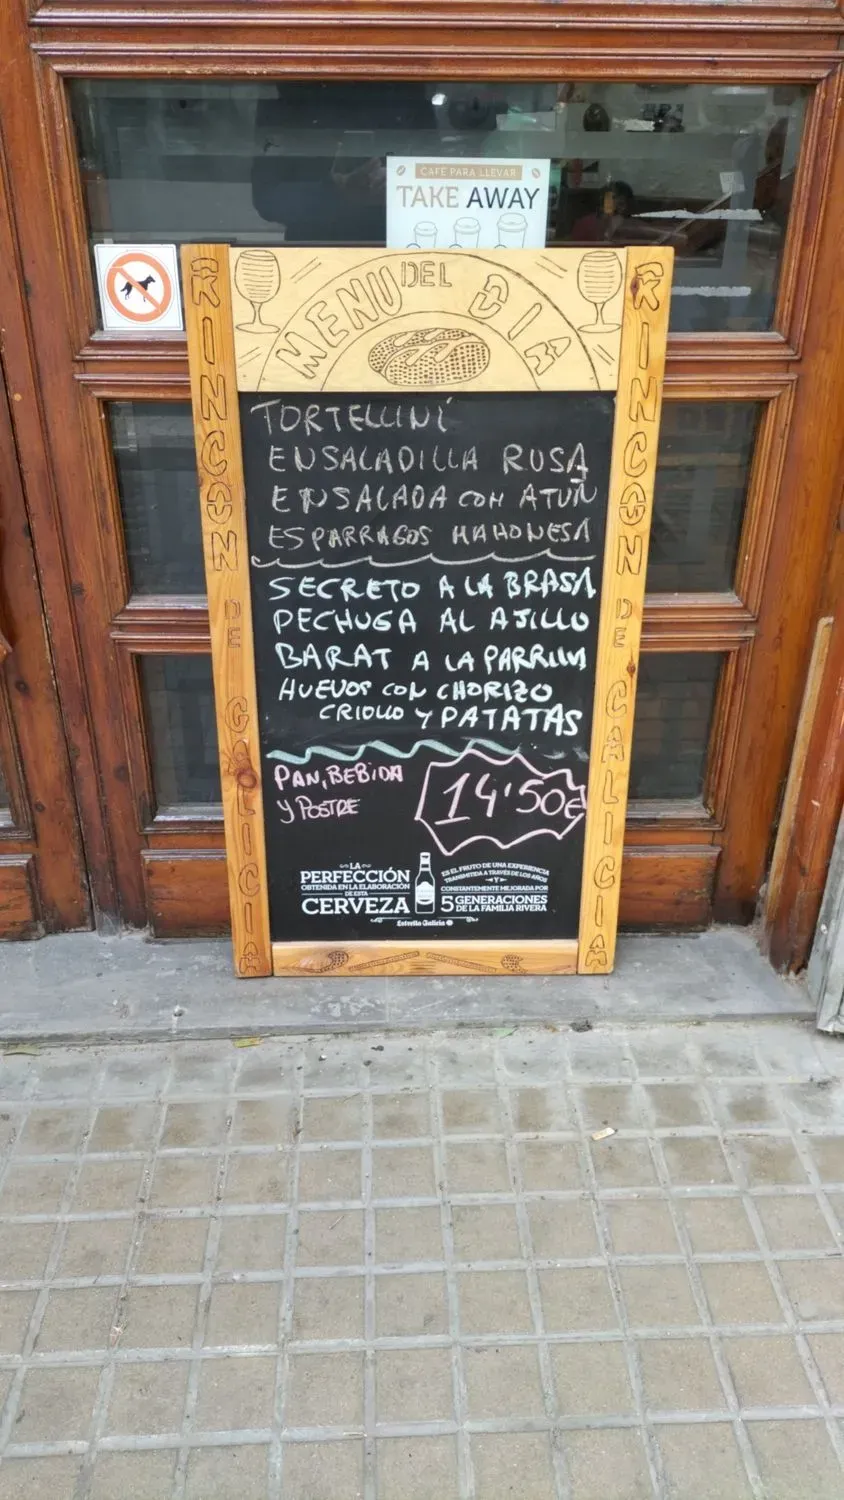 CAFE PARA LLEVAR
TAKE AWAY
MENU DEL DIA
RINCON DE GALICIA
RINCON DE GALICIA
TORTELLINI
ENSALADILLA RUSA
ENSALADA CON ATUN
ESPARRAGOS MAHONESA
SECRETO A LA BRASA
PECHUGA AL AJILLO
BARAT A LA PARRILLA
HUEVOS CON CHORIZO
CRIOLLO Y PATATAS
PAN, BEBIDA
Y POSTRE
14'50€
LA
PERFECCIÓN
OBTENIDA EN LA ELABORACIÓN
DE ESTA
CERVEZA
ES EL FRUTO DE UNA EXPERIENCIA
TRANSMITIDA A TRAVÉS DE LOS AÑOS
Y
CONSTANTEMENTE MEJORADA POR
5 GENERACIONES
DE LA FAMILIA RIVERA
Estrella Galicia